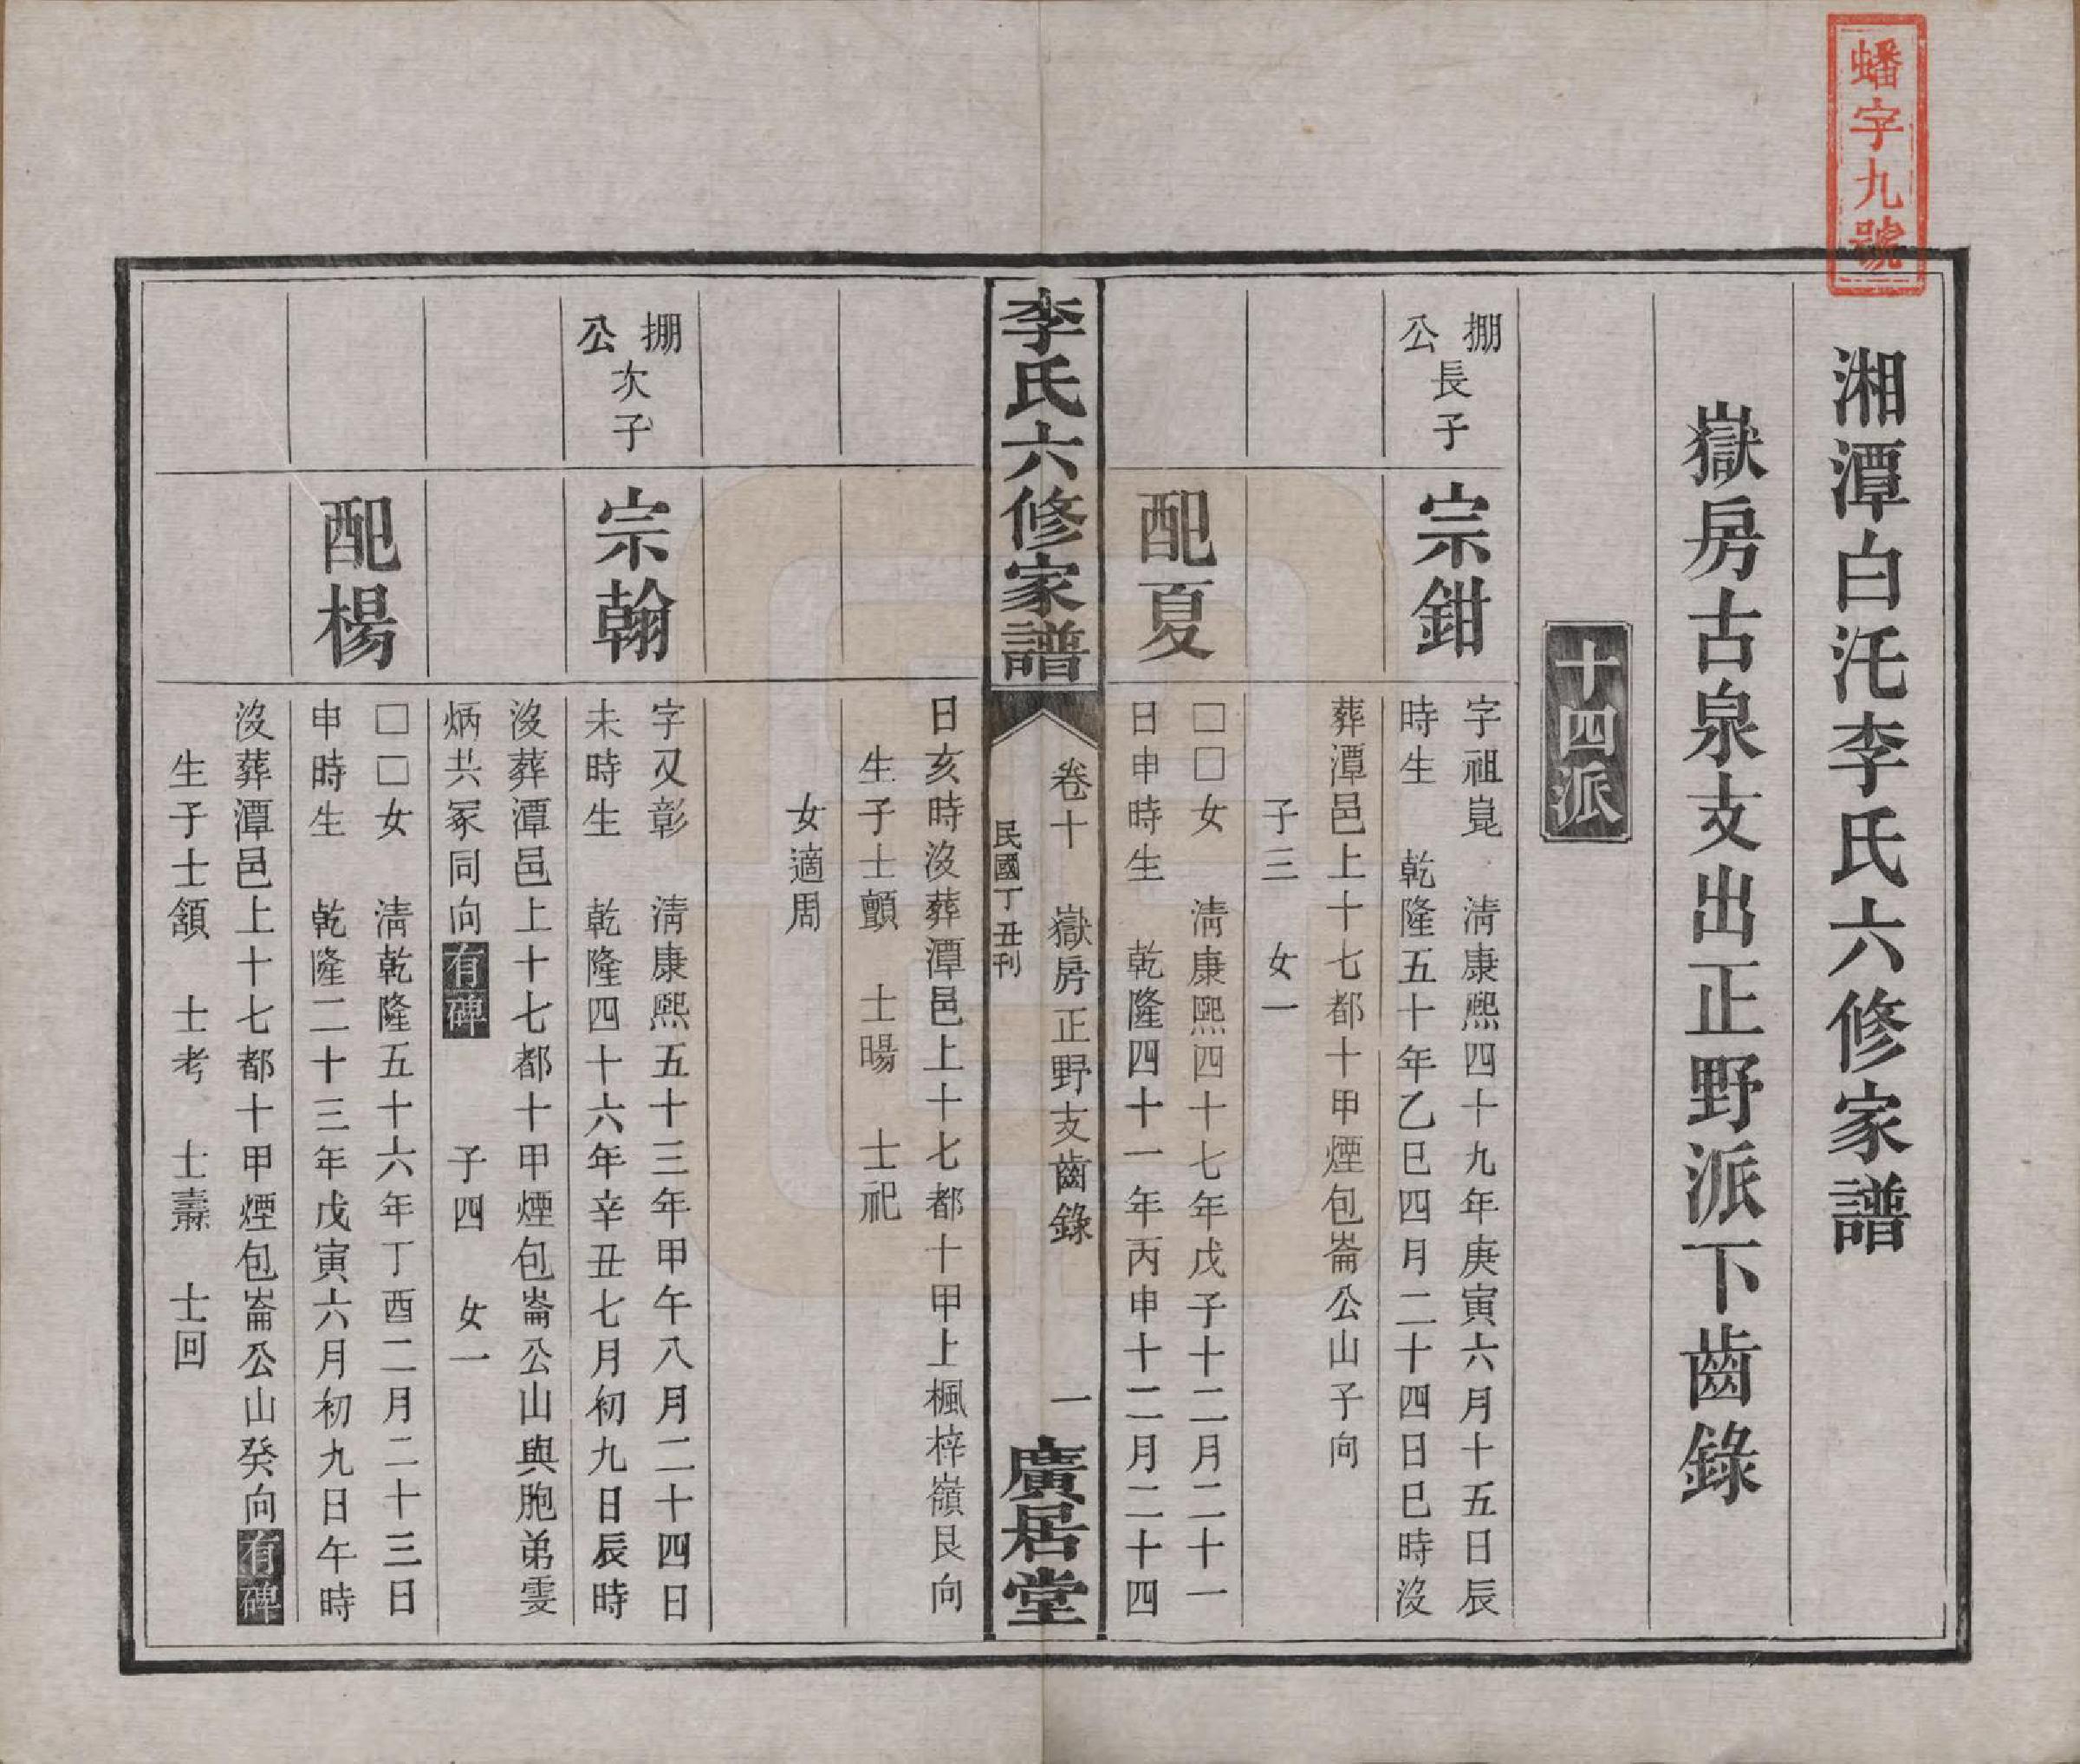 蟠字九號
湘潭白汑李氏六修家譜
嶽房古泉支出正野派下齒錄
十四派
掤公長子
宗鉗
字祖嵬　清康熙四十九年庚寅六月十五日辰
時生　乾隆五十年乙巳四月二十四日巳時沒
葬潭邑上十七都十甲煙包崙公山子向
子三　女一
配夏
□□女　清康熙四十七年戊子十二月二十一
日申時生　乾隆四十一年丙申十二月二十四
李氏六修家譜
卷十　嶽房正野支齒錄　一
民國丁丑刊
廣居堂
日亥時沒葬潭邑上十七都十甲上楓梓嶺艮向
生子士顫　士暘　士祀
女適周
掤公次子
宗翰
字及彰　清康熙五十三年甲午八月二十四日
未時生　乾隆四十六年辛丑七月初九日辰時
沒葬潭邑上十七都十甲煙包崙公山與胞弟雯
炳共冢同向有碑　子四　女一
配楊
□□女　清乾隆五十六年丁酉二月二十三日
申時生　乾隆二十三年戊寅六月初九日午時
沒葬潭邑上十七都十甲煙包崙公山癸向有碑
生子士額　士考　士壽　士回